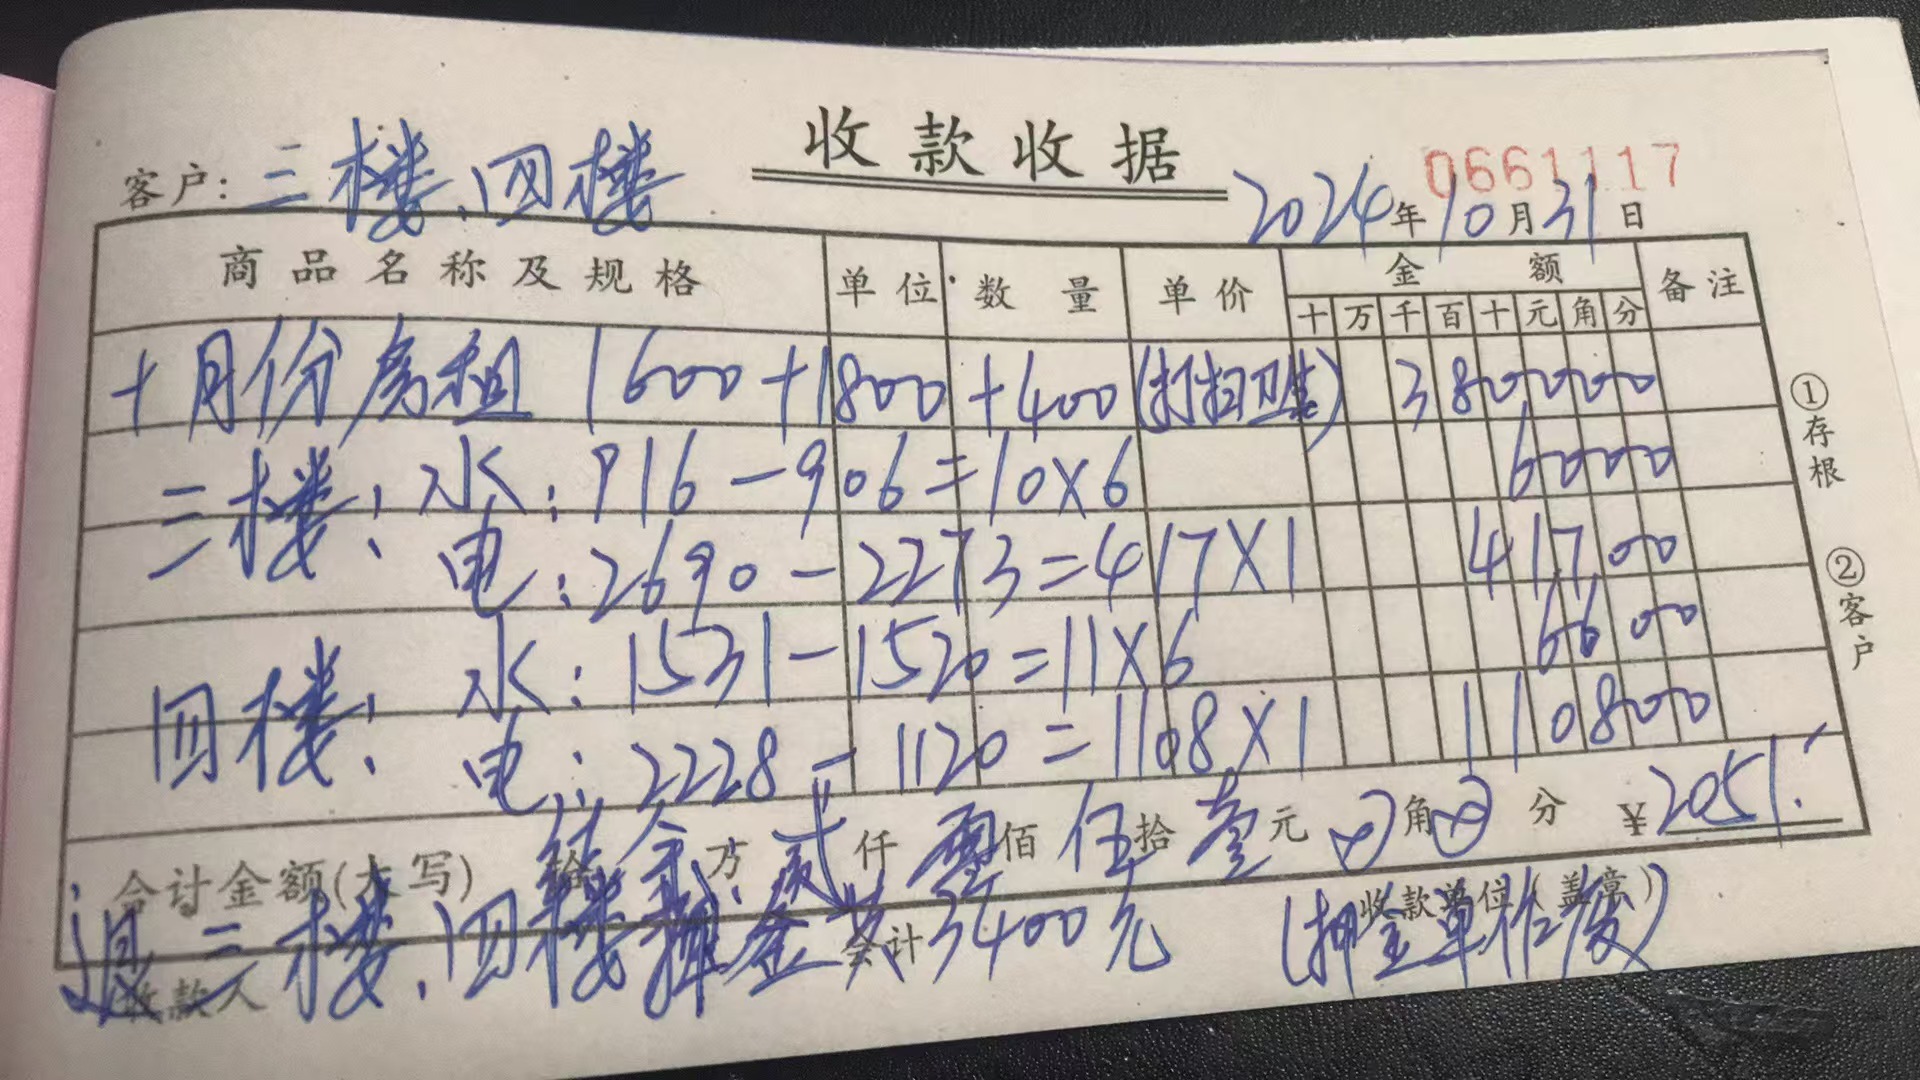 收款收据
0661117
客户: 三楼、四楼 2024年10月31日
商品名称及规格 单位 数量 单价 金额 备注
十 万 千 百 十 元 角 分
十月份房租 1600+1800+400(打扫卫生) 380000
三楼: 水: 916-906=10×6 6000
电: 2690-2273=417×1 41700
四楼: 水: 1531-1520=11×6 6600
电: 2228-1120=1108×1 110800
合计金额(大写) 拾 万 贰仟零佰伍拾壹元 角 分 ¥2051.
收款单位(盖章)
退三楼、四楼押金共3400元 (押金单作废)
收款人 会计
①存根 ②客户